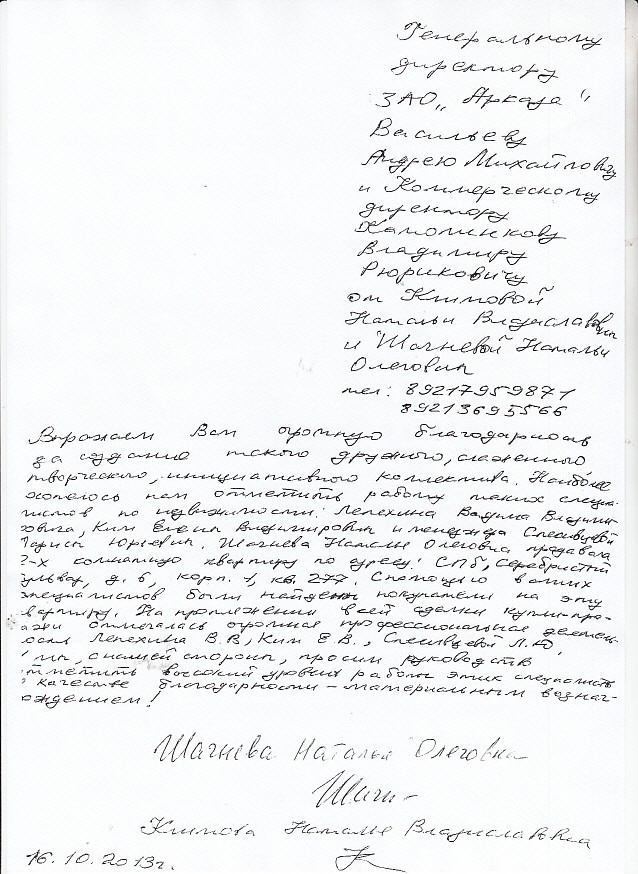 Генеральному
директору
ЗАО „Аркада“,
Васильеву
Андрею Михайловичу
и Коммерческому
директору
Владимиру
Рюриковичу
от Климовой
Натальи Владиславовны
и Шагневой Натальи
Олеговны
тел: 89217959871
89213695566
Выражаем Вам огромную благодарность
за создание такого дружного, слаженного
творческого, инициативного коллектива. Наиболее
хотелось нам отметить работу таких специа-
листов по недвижимости: Лепехина Вадима Владими-
ровича, Ким Елены Владимировны и менеджера
Ларисы Юрьевны. Шагнева Наталья Олеговна продавала
2-х комнатную квартиру по адресу: СПб, Серебристый
бульвар, д. 6, корп. 1, кв. 277. С помощью ваших
специалистов были найдены покупатели на эту
квартиру. На протяжении всей сделки купли-про-
дажи отмечалась огромная профессиональная
Лепехина В.В., Ким Е.В., Л.Ю.
мы, с нашей стороны, просим руководство
отметить высокий уровень работы этих специалистов
в качестве благодарности – материальным вознаг-
рождением!
Шагнева Наталья Олеговна
Климова Наталья Владиславовна
16.10.2013г.